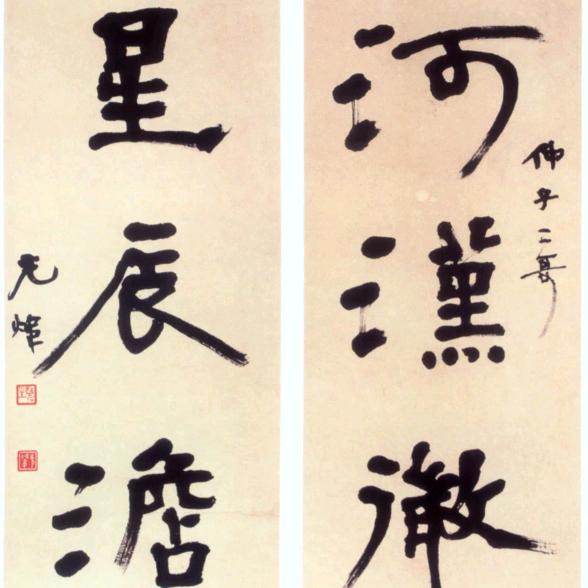 河漢徹
仲子二
星辰澹
光煒